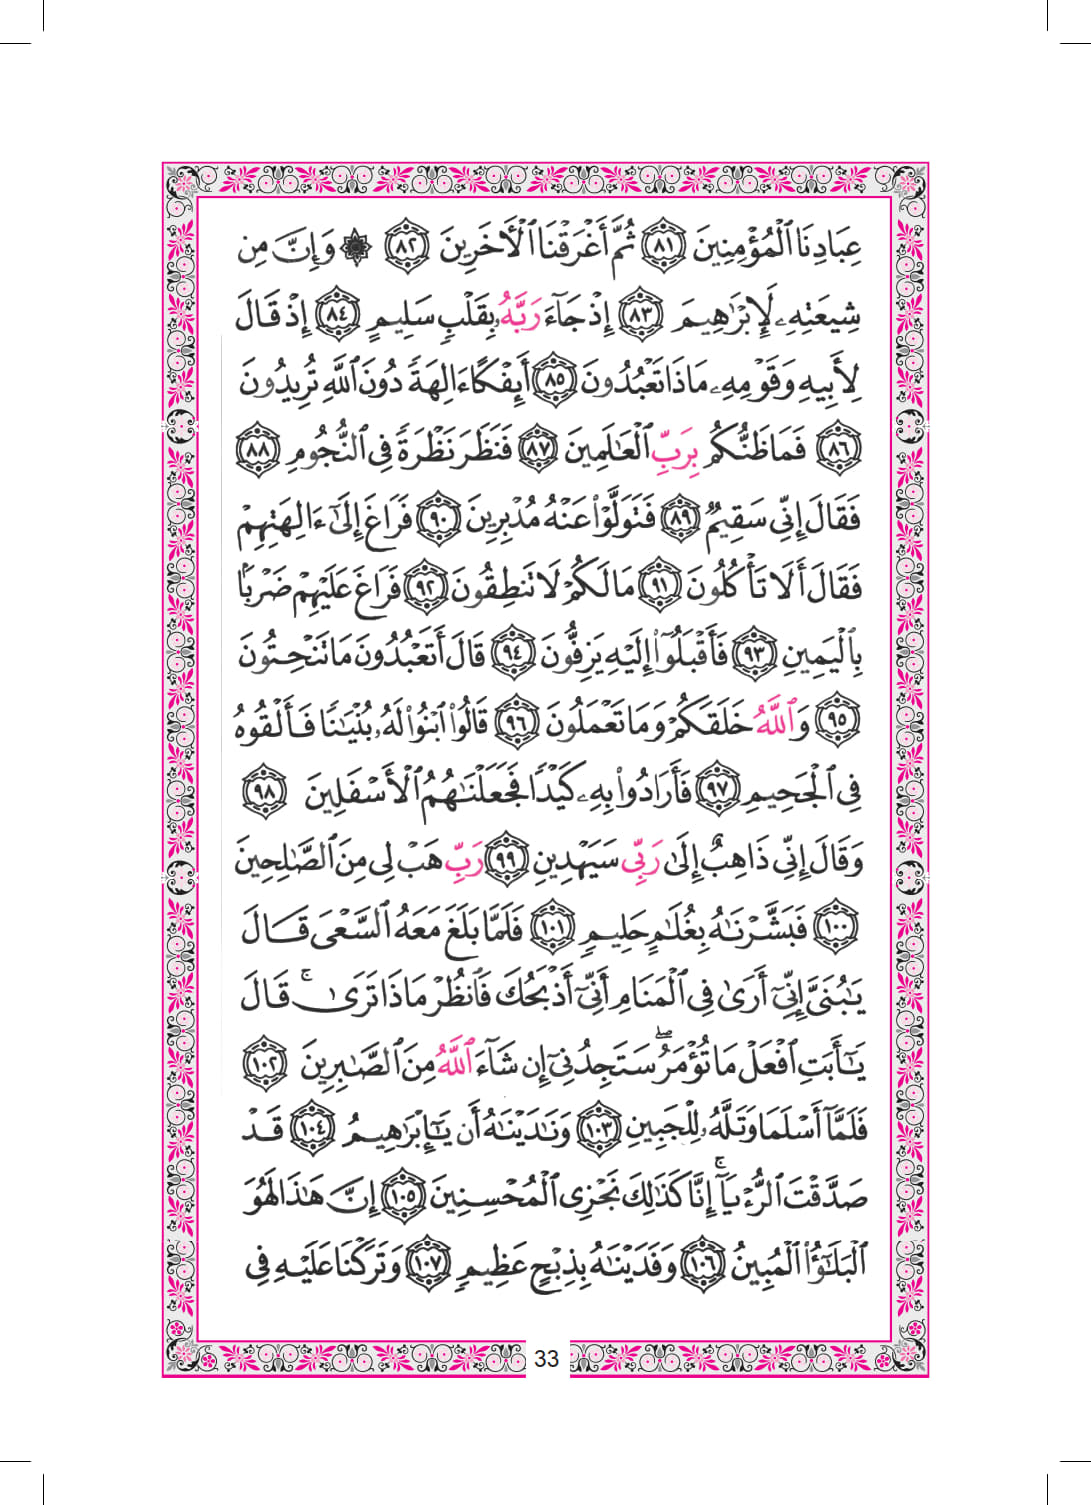 عِبَادِنَا ٱلْمُؤْمِنِينَ ٨١ ثُمَّ أَغْرَقْنَا ٱلْأَخَرِينَ ٨٢ ۞ وَإِنَّ مِن
شِيعَتِهِۦ لَإِبْرَٰهِيمَ ٨٣ إِذْ جَآءَ رَبَّهُۥ بِقَلْبٍ سَلِيمٍ ٨٤ إِذْ قَالَ
لِأَبِيهِ وَقَوْمِهِۦ مَاذَا تَعْبُدُونَ ٨٥ أَئِفْكًا ءَالِهَةً دُونَ ٱللَّهِ تُرِيدُونَ
٨٦ فَمَا ظَنُّكُم بِرَبِّ ٱلْعَٰلَمِينَ ٨٧ فَنَظَرَ نَظْرَةً فِى ٱلنُّجُومِ ٨٨
فَقَالَ إِنِّى سَقِيمٌ ٨٩ فَتَوَلَّوْا۟ عَنْهُ مُدْبِرِينَ ٩٠ فَرَاغَ إِلَىٰٓ ءَالِهَتِهِمْ
فَقَالَ أَلَا تَأْكُلُونَ ٩١ مَا لَكُمْ لَا تَنطِقُونَ ٩٢ فَرَاغَ عَلَيْهِمْ ضَرْبًۢا
بِٱلْيَمِينِ ٩٣ فَأَقْبَلُوٓا۟ إِلَيْهِ يَزِفُّونَ ٩٤ قَالَ أَتَعْبُدُونَ مَا تَنْحِتُونَ
٩٥ وَٱللَّهُ خَلَقَكُمْ وَمَا تَعْمَلُونَ ٩٦ قَالُوا۟ ٱبْنُوا۟ لَهُۥ بُنْيَٰنًا فَأَلْقُوهُ
فِى ٱلْجَحِيمِ ٩٧ فَأَرَادُوا۟ بِهِۦ كَيْدًا فَجَعَلْنَٰهُمُ ٱلْأَسْفَلِينَ ٩٨
وَقَالَ إِنِّى ذَاهِبٌ إِلَىٰ رَبِّى سَيَهْدِينِ ٩٩ رَبِّ هَبْ لِى مِنَ ٱلصَّٰلِحِينَ
١٠٠ فَبَشَّرْنَٰهُ بِغُلَٰمٍ حَلِيمٍ ١٠١ فَلَمَّا بَلَغَ مَعَهُ ٱلسَّعْىَ قَالَ
يَٰبُنَىَّ إِنِّىٓ أَرَىٰ فِى ٱلْمَنَامِ أَنِّىٓ أَذْبَحُكَ فَٱنظُرْ مَاذَا تَرَىٰ ۚ قَالَ
يَٰٓأَبَتِ ٱفْعَلْ مَا تُؤْمَرُ ۖ سَتَجِدُنِىٓ إِن شَآءَ ٱللَّهُ مِنَ ٱلصَّٰبِرِينَ ١٠٢
فَلَمَّآ أَسْلَمَا وَتَلَّهُۥ لِلْجَبِينِ ١٠٣ وَنَٰدَيْنَٰهُ أَن يَٰٓإِبْرَٰهِيمُ ١٠٤ قَدْ
صَدَّقْتَ ٱلرُّءْيَآ ۚ إِنَّا كَذَٰلِكَ نَجْزِى ٱلْمُحْسِنِينَ ١٠٥ إِنَّ هَٰذَا لَهُوَ
ٱلْبَلَٰٓؤُا۟ ٱلْمُبِينُ ١٠٦ وَفَدَيْنَٰهُ بِذِبْحٍ عَظِيمٍ ١٠٧ وَتَرَكْنَا عَلَيْهِ فِى
33